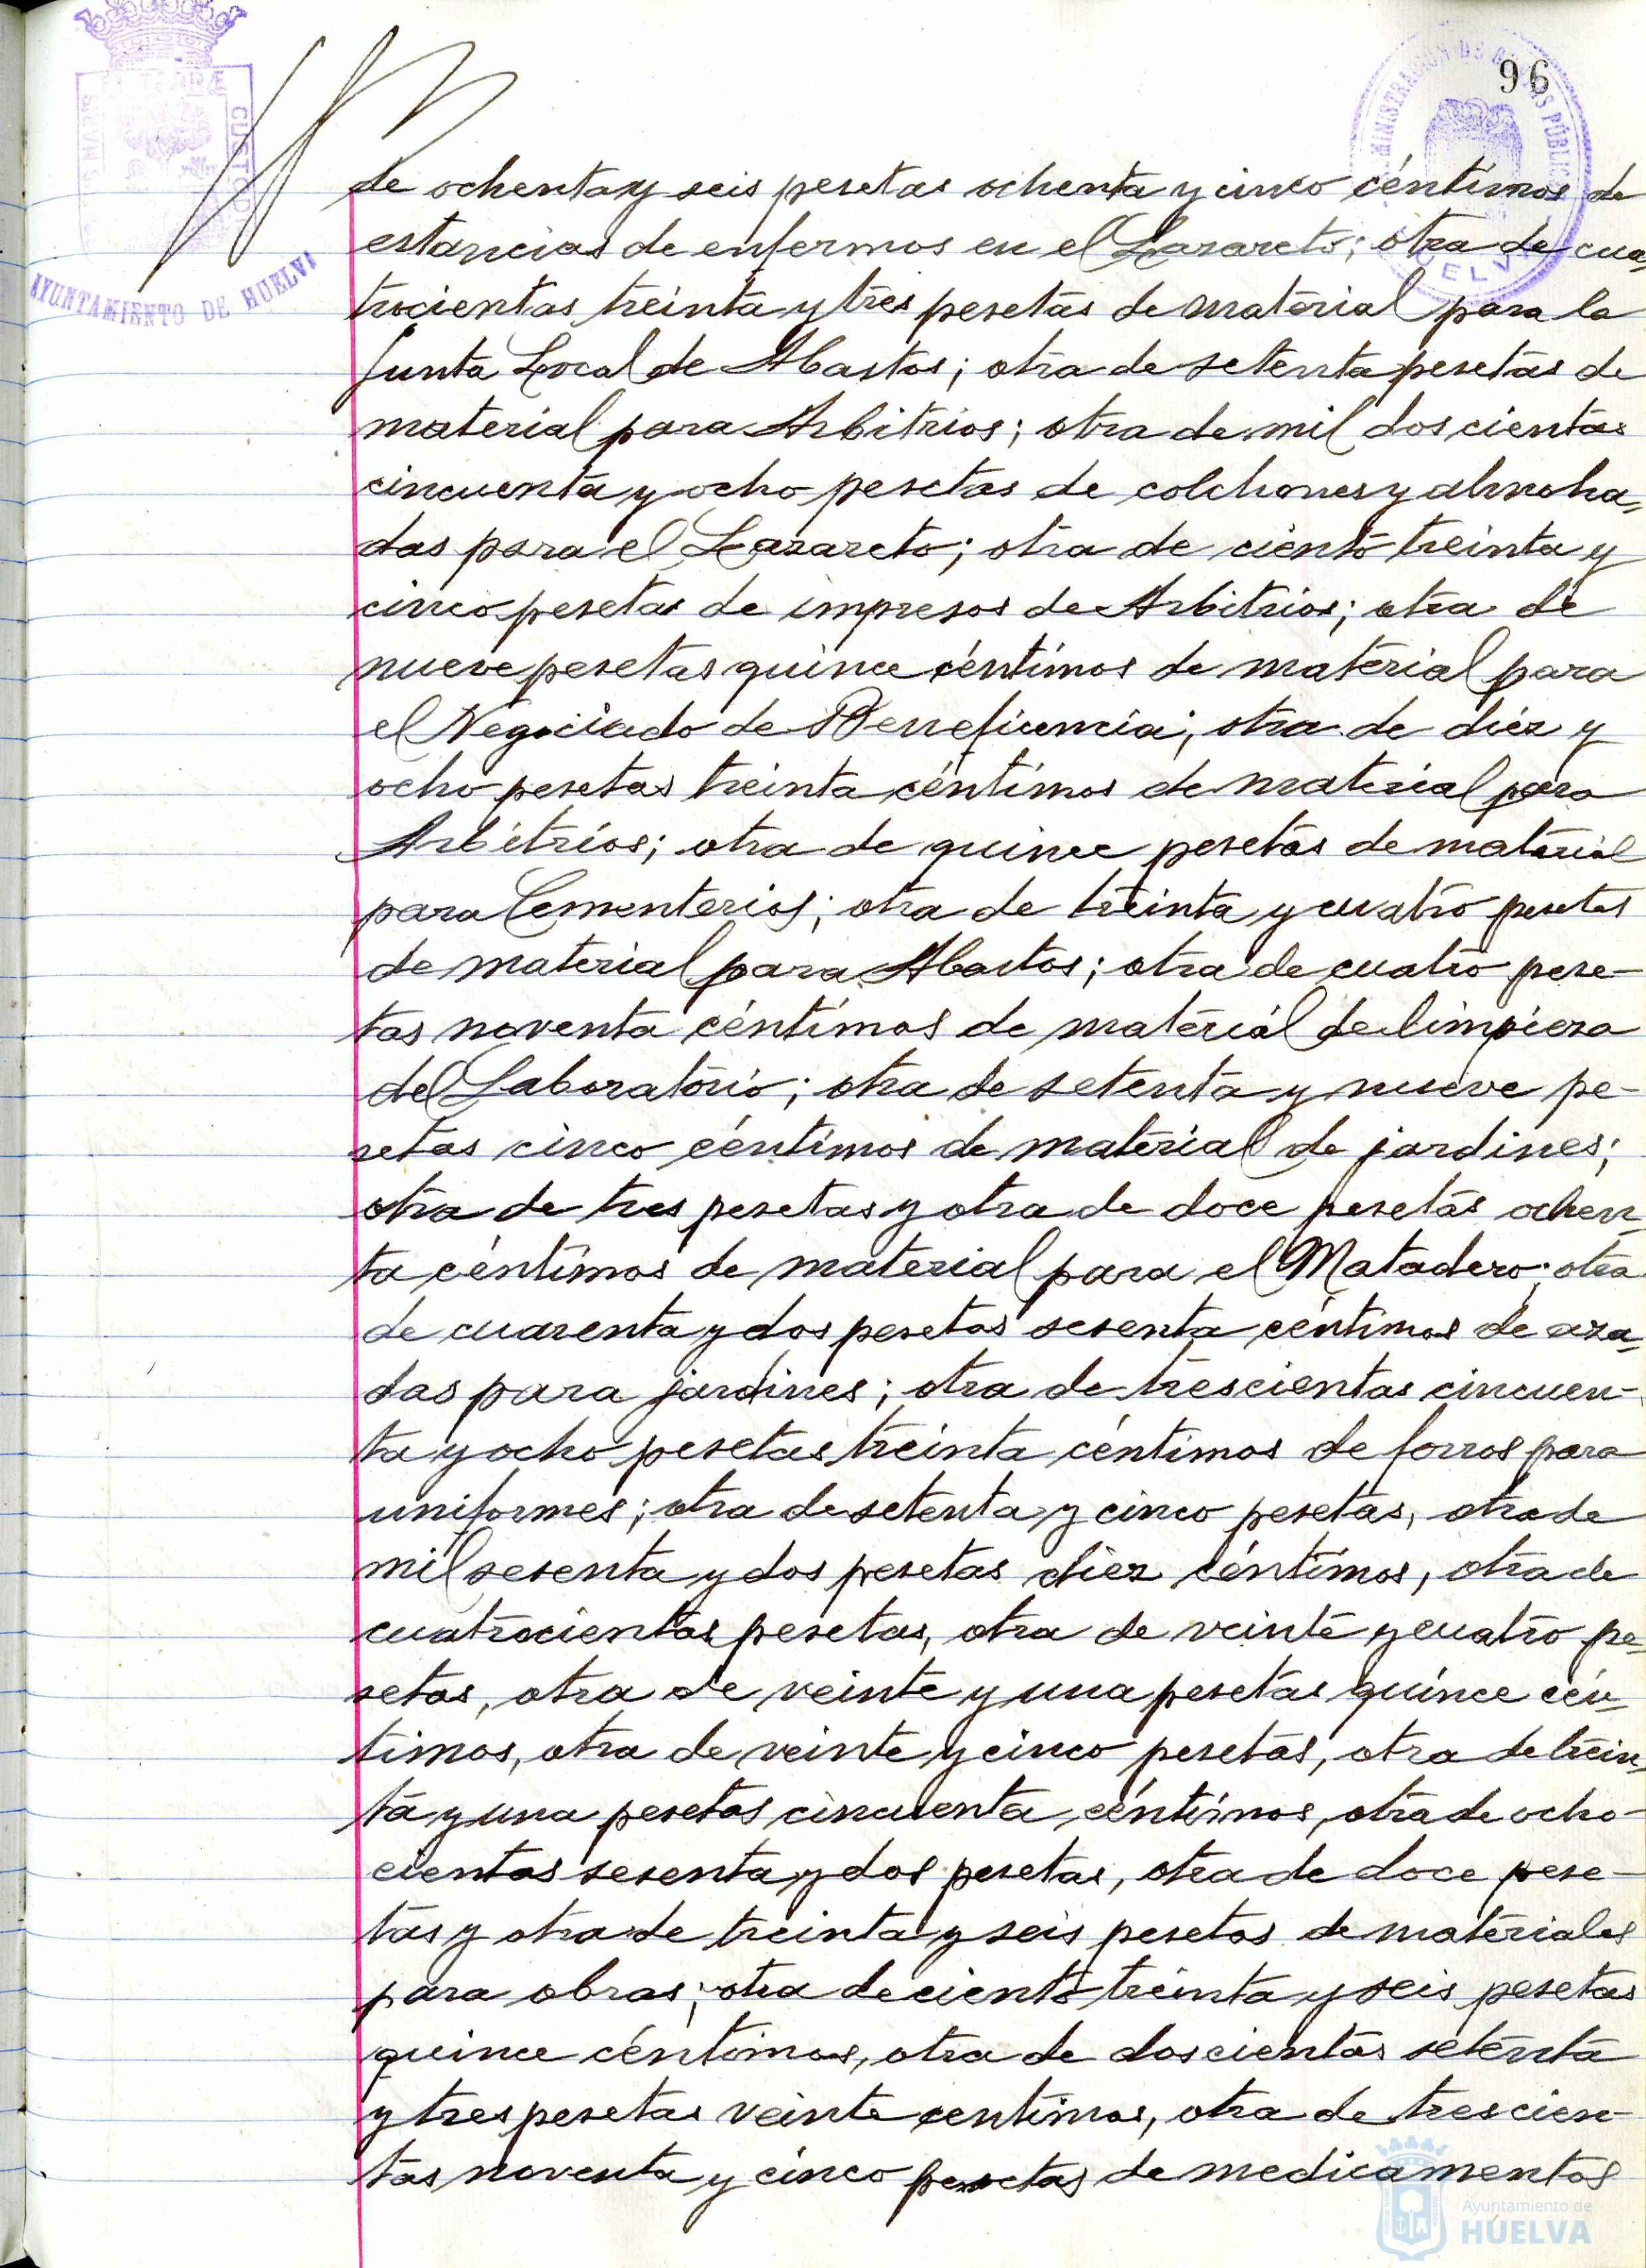 96
PORTUS MARIS ET TERRÆ CUSTODIA
AYUNTAMIENTO DE HUELVA
ADMINISTRACION DE RENTAS PÚBLICAS
HUELVA
de ochenta y seis pesetas ochenta y cinco céntimos de
estancias de enfermos en el Lazareto; otra de cua-
trocientas treinta y tres pesetas de material para la
Junta Local de Abastos; otra de setenta pesetas de
material para Arbitrios; otra de mil doscientas
cincuenta y ocho pesetas de colchones y almoha-
das para el Lazareto; otra de ciento treinta y
cinco pesetas de impresos de Arbitrios; otra de
nueve pesetas quince céntimos de material para
el Negociado de Beneficencia; otra de diez y
ocho pesetas treinta céntimos de material para
Arbitrios; otra de quince pesetas de material
para Cementerios; otra de treinta y cuatro pesetas
de material para Abastos; otra de cuatro pese-
tas noventa céntimos de material de limpieza
del Laboratorio; otra de setenta y nueve pe-
setas cinco céntimos de material de jardines;
otra de tres pesetas y otra de doce pesetas ochen-
ta céntimos de material para el Matadero; otra
de cuarenta y dos pesetas sesenta céntimos de aza-
das para jardines; otra de trescientas cincuen-
ta y ocho pesetas treinta céntimos de forros para
uniformes; otra de setenta y cinco pesetas, otra de
mil sesenta y dos pesetas diez céntimos, otra de
cuatrocientas pesetas, otra de veinte y cuatro pe-
setas, otra de veinte y una pesetas quince cén-
timos, otra de veinte y cinco pesetas, otra de trein-
ta y una pesetas cincuenta céntimos, otra de ocho-
cientas sesenta y dos pesetas, otra de doce pese-
tas y otra de treinta y seis pesetas de materiales
para obras; otra de ciento treinta y seis pesetas
quince céntimos, otra de doscientas setenta
y tres pesetas veinte centimos, otra de trescien-
tas noventa y cinco pesetas de medicamentos
Ayuntamiento de
HUELVA